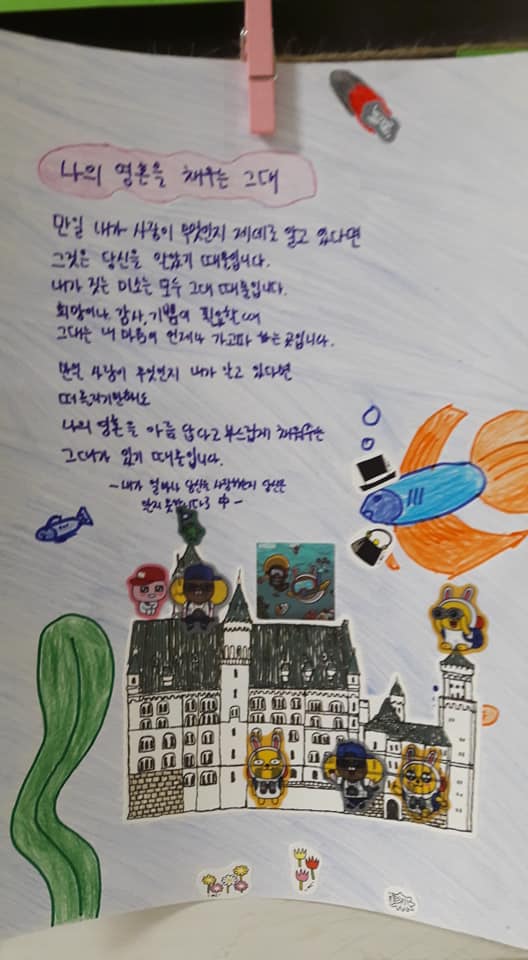 나의 영혼을 채우는 그대
만일 내가 사랑이 무엇인지 제대로 알고 있다면
그것은 당신을 알았기 때문입니다.
내가 짓는 미소는 모두 그대 때문입니다.
희망이나, 감사, 기쁨이 필요할 때
그대는 내 마음이 언제나 가고파 하는 곳입니다.
만일 사랑이 무엇인지 내가 알고 있다면
나의 영혼을 아름답다고 부드럽게 채워주는
그대가 있기 때문입니다.
~내가 얼마나 당신을 사랑하는지 당신은
알지 못합니다 中-